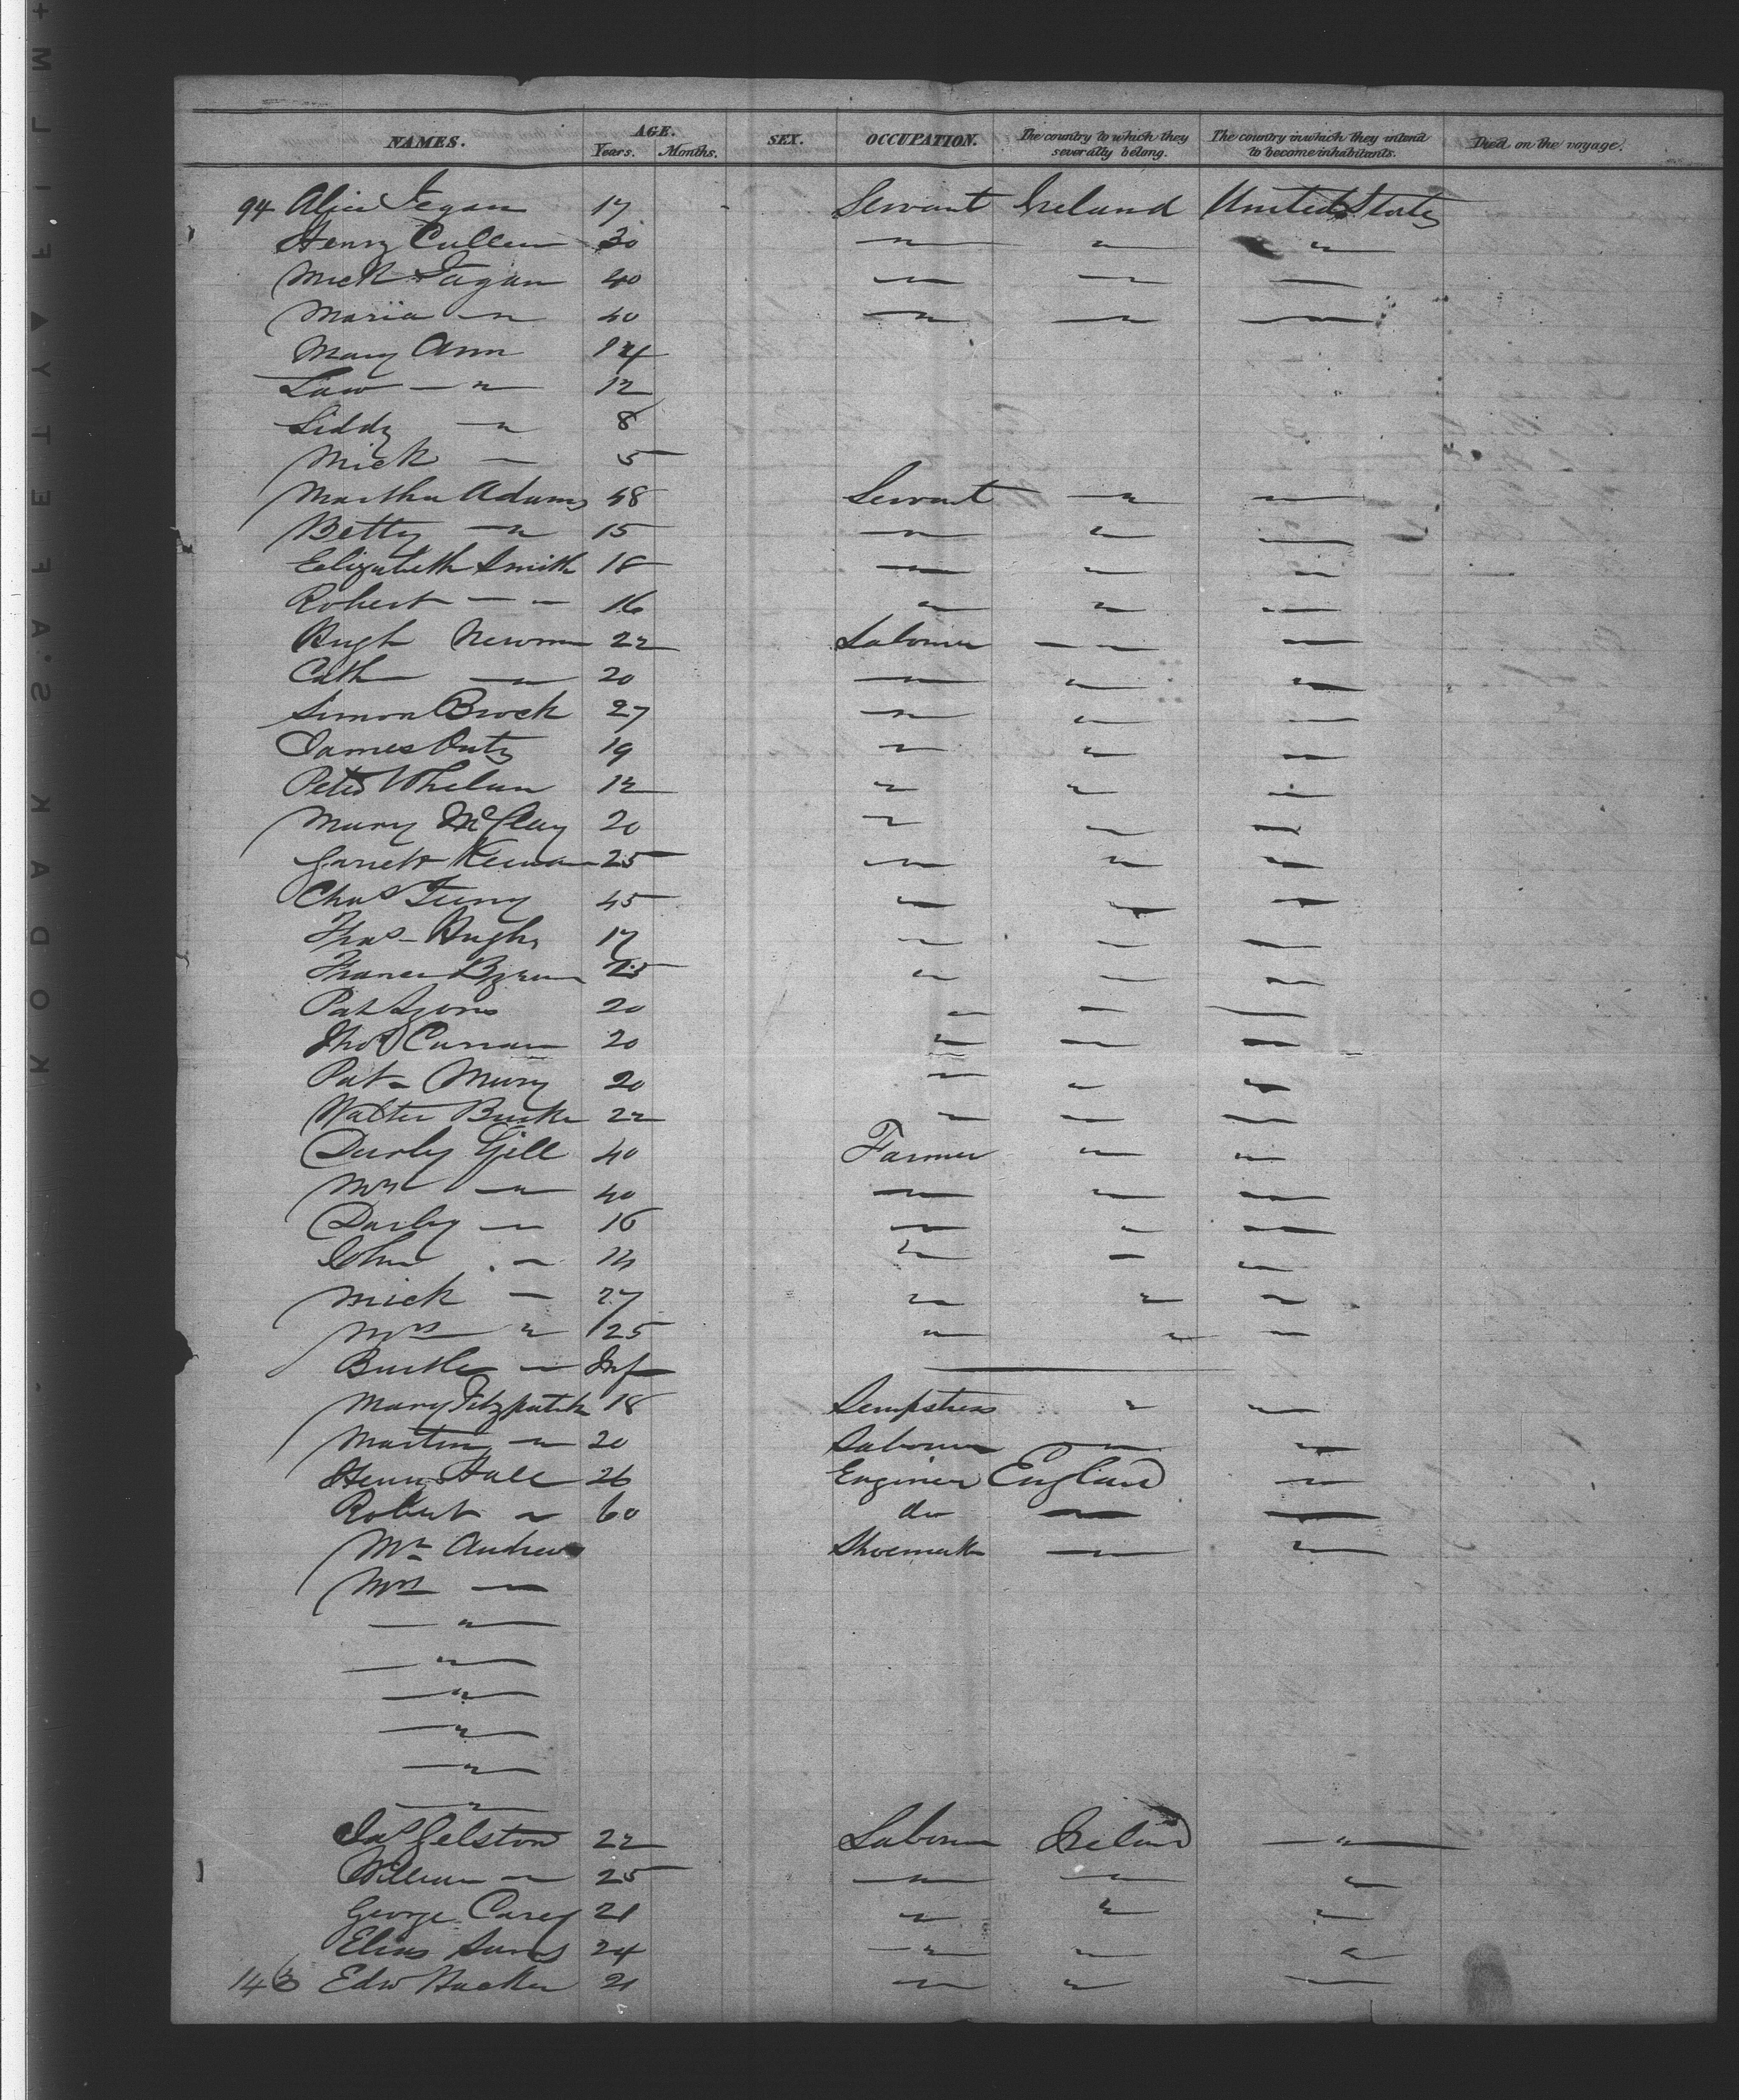 NAMES. AGE. Years. Months. SEX. OCCUPATION. The country to which they severally belong. The country in which they intend to become inhabitants. Died on the voyage.
94 Alice Fegan 17 Servant Ireland United States
Henry Cullen 30 " " "
Mick Fagan 40 " " "
Maria " 40 " " "
Mary Ann 14
Law " 12
Liddy " 8
Mick " 5
Martha Adams 48 Servant " "
Betty " 15 " " "
Eelizabeth Smith 18 " " "
Robert " 16 " " "
Hugh Newman 22 Labourer " "
Cath " 20 " " "
Simon Brock 27 " " "
James 19 " " "
Peter Whelan 12 " " "
Mary McClay 20 " " "
Garrett 25 " " "
Chas 45 " " "
Thos Hughs 17 " " "
Byrne " " "
Pat Lyons 20 " " "
Thos Curran 20 " " "
Pat 20 " " "
Walter Burke 22 " " "
Darby Gill 40 Farmer " "
Mrs " 40 " " "
Darby " 16 " " "
John " 14 " " "
Mick " 27 " " "
Mrs " 25 " " "
" Inf
Mary Fitzpatrick 18 Sempstress " "
Martin " 20 Labourer " "
Henry Hall 26 Enginer England "
Robert " 60 do " "
Mr Andrews Shoemak " "
Mrs "
"
"
"
"
"
"
Jas Gelston 22 Labourer Ireland "
William " 25 " " "
George Carey 21 " " "
Elias 24 " " "
143 Edw Hacker 21 " " "
KODAK SAFETY FILM